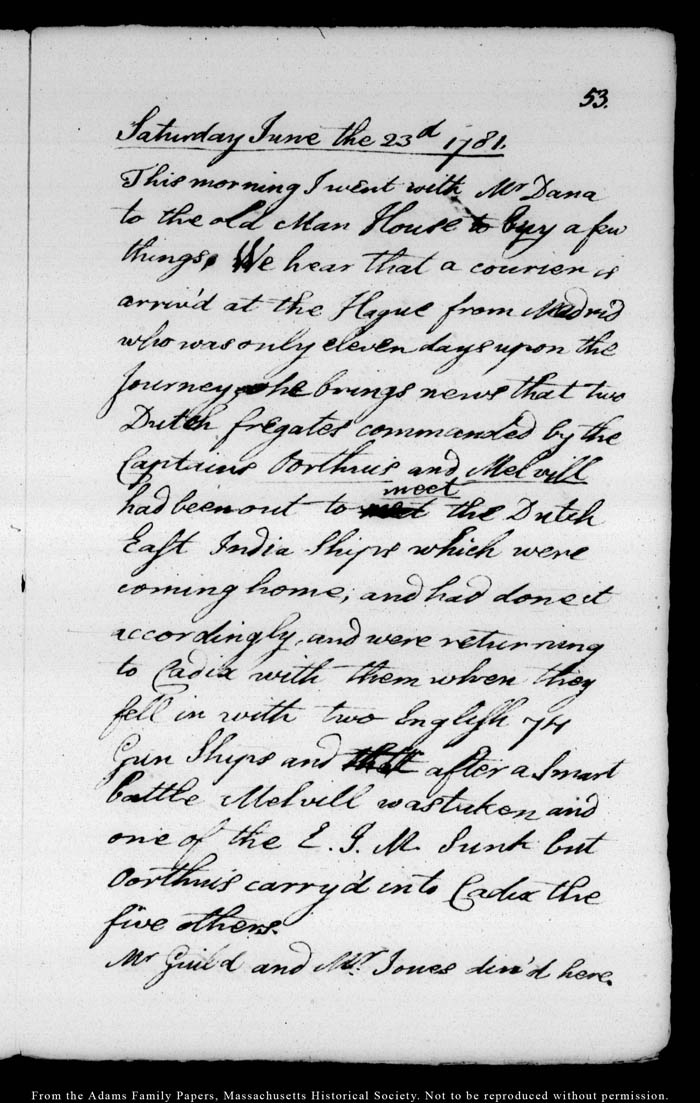 53.
Saturday June the 23d 1781.
This morning I went with Mr Dana
to the old Man House to buy a few
things. We hear that a courier is
arriv'd at the Hague from Madrid
who was only eleven days upon the
Journey, he brings news that two
Dutch fregates commanded by the
Captains Oorthuis and Melvill
meet
had been out to the Dutch
East India Ships which were
coming home, and had done it
accordingly, and were returning
to Cadix with them when they
fell in with two English 74
Gun Ships and after a Smart
battle Melvill was taken and
one of the E. I. M. Sunk but
Oorthuis carry'd into Cadix the
five others.
Mr Guild and Mr. Jones din'd here.
From the Adams Family Papers, Massachusetts Historical Society. Not to be reproduced without permission.